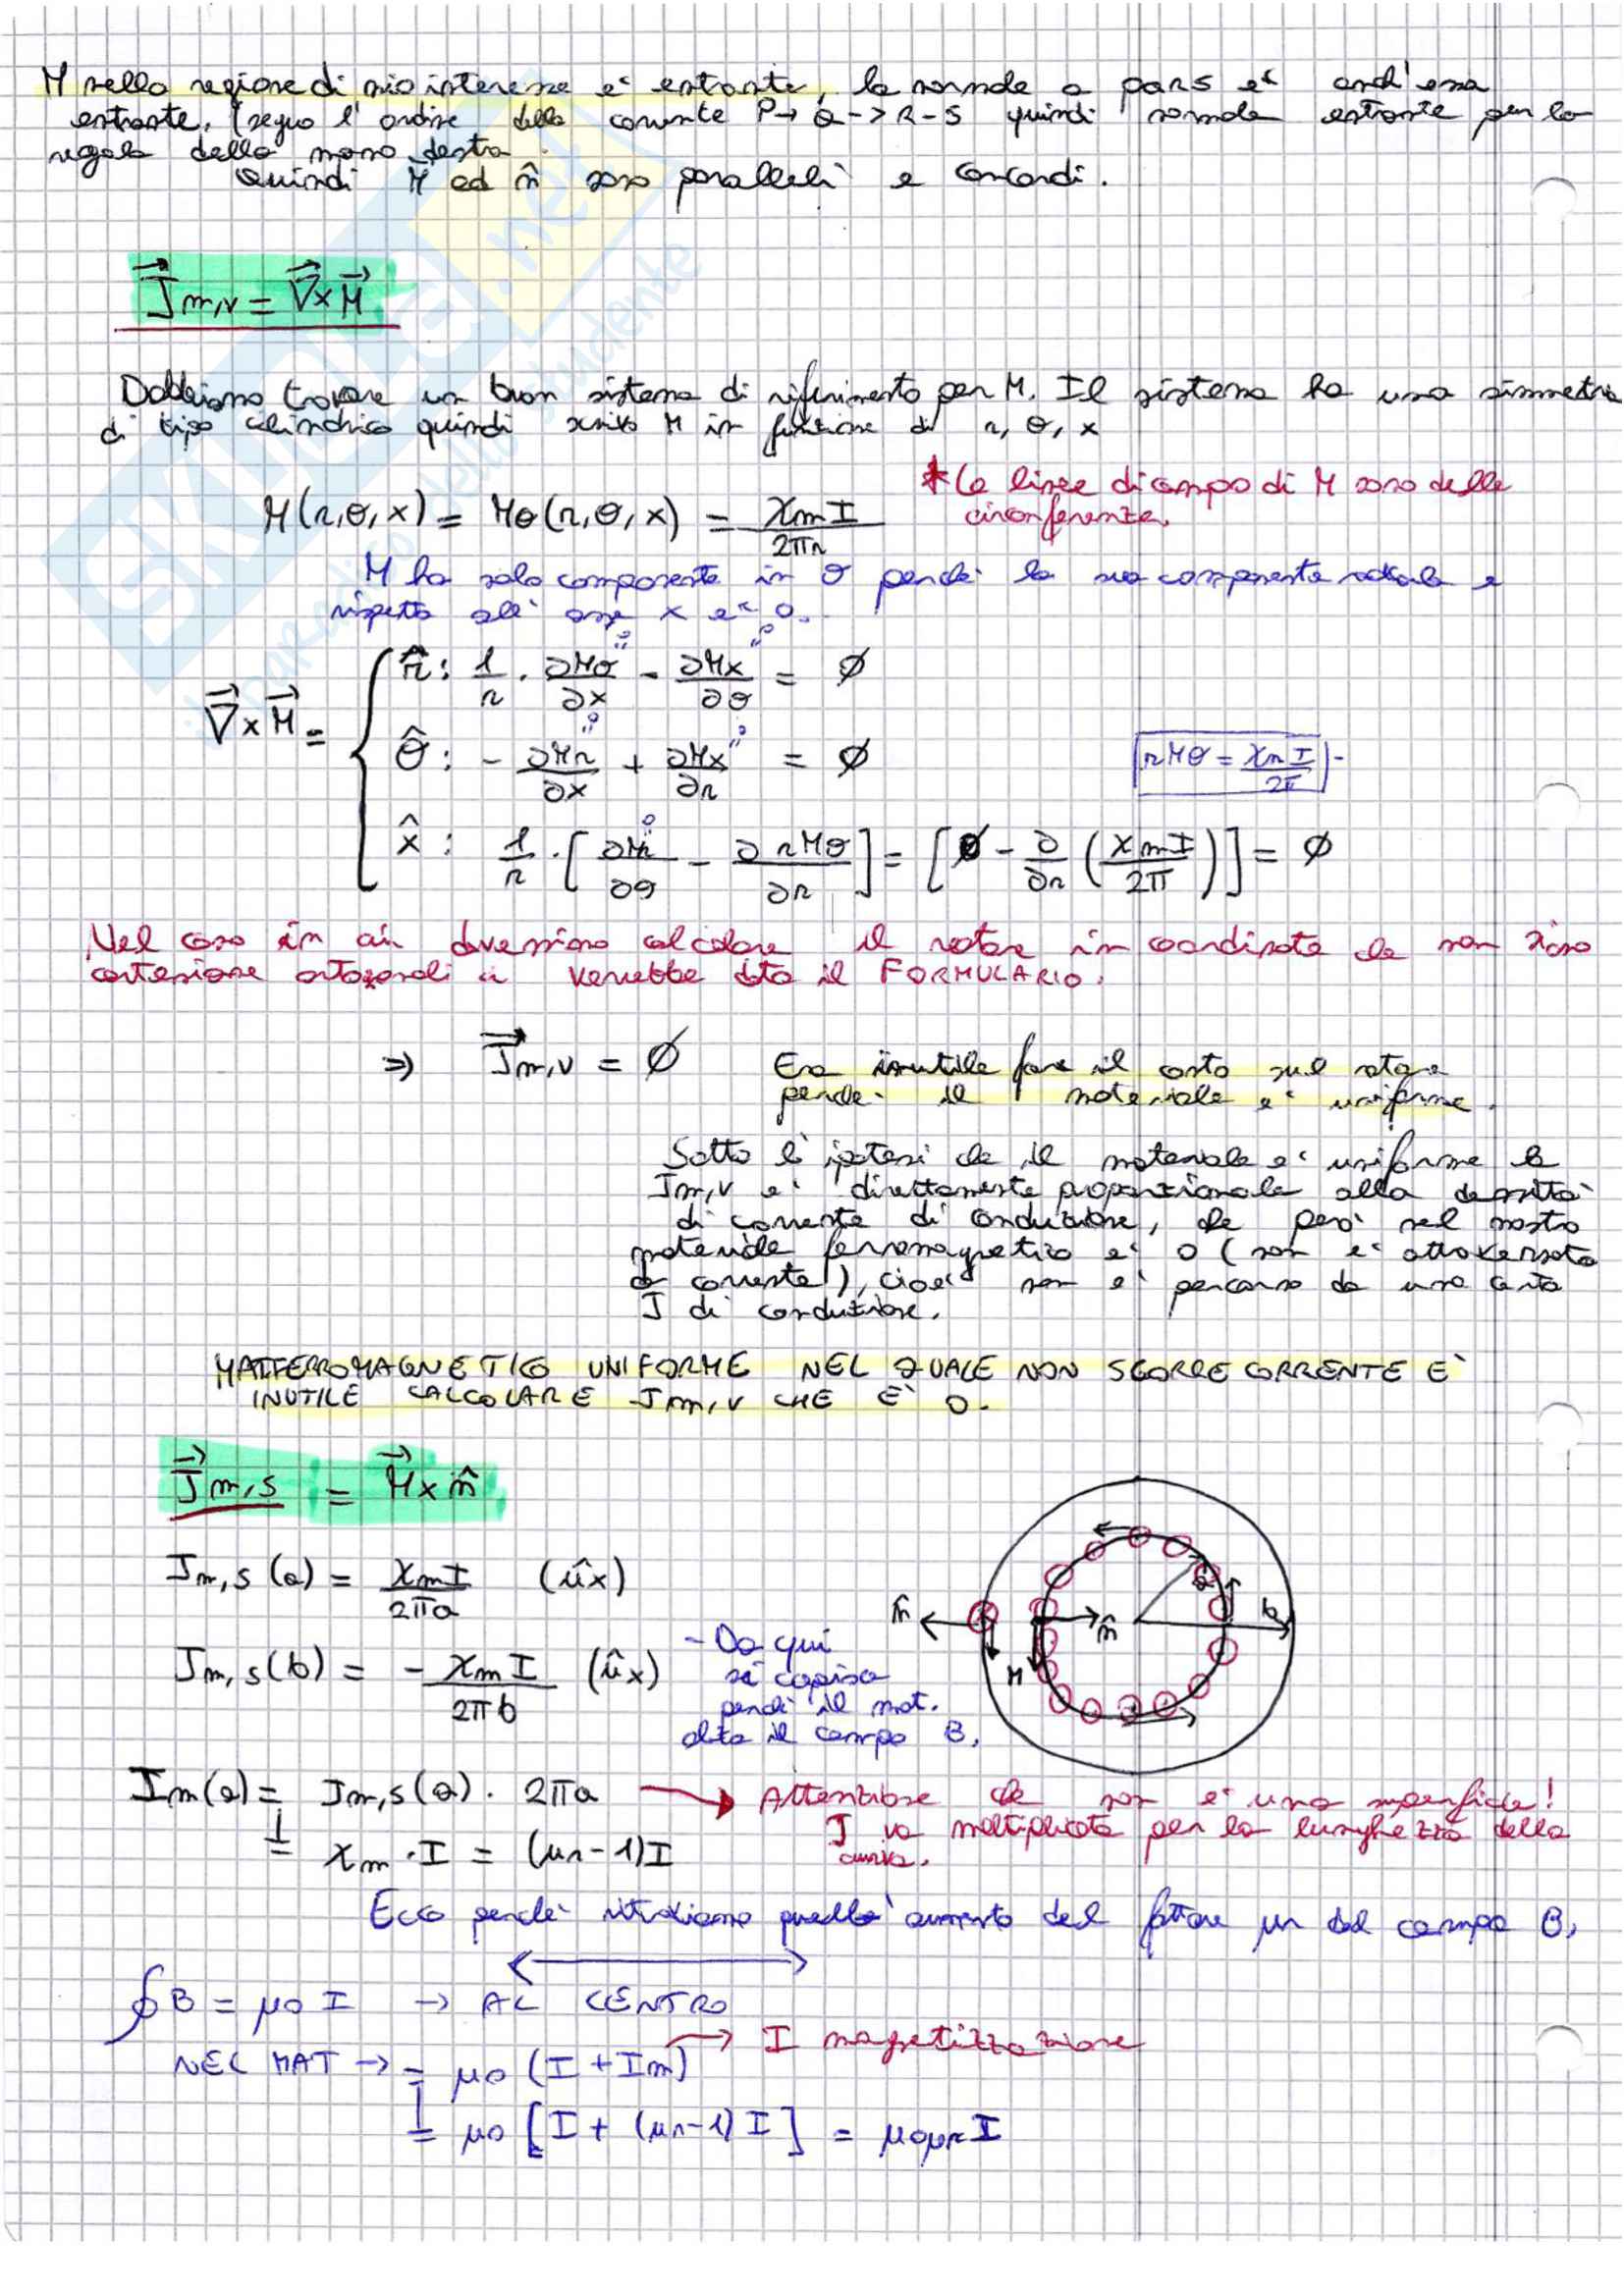 M nella regione di mio interesse e' entrante, la normale a PQRS e' anch'essa
entrante, (seguo l'ordine della corrente P→Q→R-S quindi normale entrante per la
regola della mano destra.
Quindi M ed n̂ sono paralleli e concordi.
J⃗m,v = ∇⃗×M⃗
Dobbiamo trovare un buon sistema di riferimento per M. Il sistema ha una simmetria
di tipo cilindrico quindi scrivo M in funzione di r, θ, x
* Le linee di campo di M sono delle
circonferenze.
M(r,θ,x) = Mθ(r,θ,x) = χmI / 2πr
M ha solo componente in θ perche' la sua componente radiale e
rispetto all'asse x e' 0.
∇⃗×M⃗ =
r̂: 1/r · ∂Mθ/∂x - ∂Mx/∂θ = Ø
θ̂: - ∂Mr/∂x + ∂Mx/∂r = Ø
rMθ = χmI / 2π
x̂: 1/r · [∂Mr/∂θ - ∂rMθ/∂r] = [Ø - ∂/∂r (χmI/2π)] = Ø
Nel caso in cui dovessimo calcolare il rotore in coordinate che non siano
cartesiane ortogonali ci verrebbe dato il FORMULARIO.
⇒ J⃗m,v = Ø
Era inutile fare il conto sul rotore
perche' il materiale e' uniforme.
Sotto l'ipotesi che il materiale e' uniforme la
Jm,v e' direttamente proporzionale alla densita'
di corrente di conduzione, che pero' nel nostro
materiale ferromagnetico e' 0 (non e' attraversato
da corrente), cioe' non e' percorso da una certa
J di conduzione.
MAT FERROMAGNETICO UNIFORME NEL QUALE NON SCORRE CORRENTE E'
INUTILE CALCOLARE Jm,v CHE E' 0.
J⃗m,s = M⃗×n̂
Jm,s (a) = χmI / 2πa (ûx)
Jm,s (b) = - χmI / 2πb (ûx)
- Da qui
si capisce
perche' il mat.
altera il campo B.
n̂
n̂
M
a
b
Im(a) = Jm,s(a) · 2πa
→ Attenzione che non e' una superficie!
J va moltiplicata per la lunghezza della
curva.
= χm · I = (μr-1)I
Ecco perche' ritroviamo quell'aumento del fattore μr del campo B.
∮B = μ0 I → AL CENTRO
→ I magnetizzazione
NEL MAT → = μ0 (I + Im)
= μ0 [I + (μr-1) I] = μ0μr I